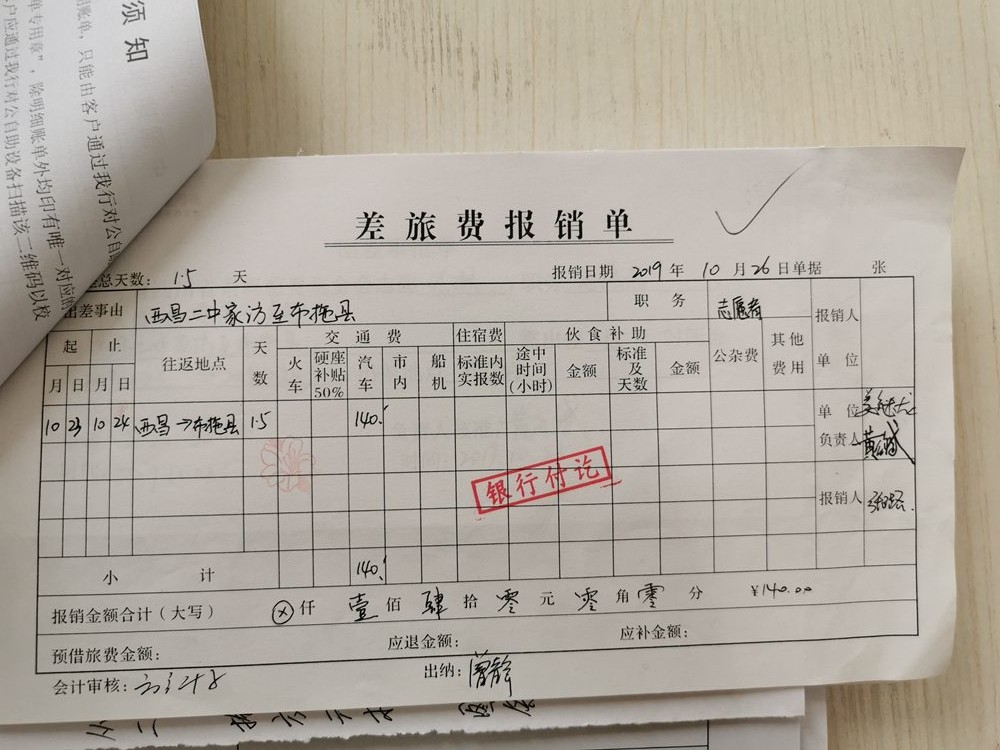 须知
账单，只能由客户通过我行对公自
单专用章"，除明细账单外均印有唯一对应的
户应通过我行对公自助设备扫描该二维码以校
差旅费报销单
总天数： 1.5 天
报销日期 2019 年 10 月 26 日 单据 张
出差事由 西昌二中家访至布拖县 职务 志愿者 报销人
单位
起 止 往返地点 天数 交通费 住宿费 伙食补助 公杂费 其他费用
月 日 月 日 火车 硬座补贴50% 汽车 市内 船机 标准内实报数 途中时间(小时) 金额 标准及天数 金额
10 23 10 24 西昌→布拖县 1.5 140.
单位
负责人
银行付讫
报销人
小计 140.
报销金额合计（大写） ⊗ 仟 壹 佰 肆 拾 零 元 零 角 零 分 ¥140.00
预借旅费金额： 应退金额： 应补金额：
会计审核： 出纳： 曾静